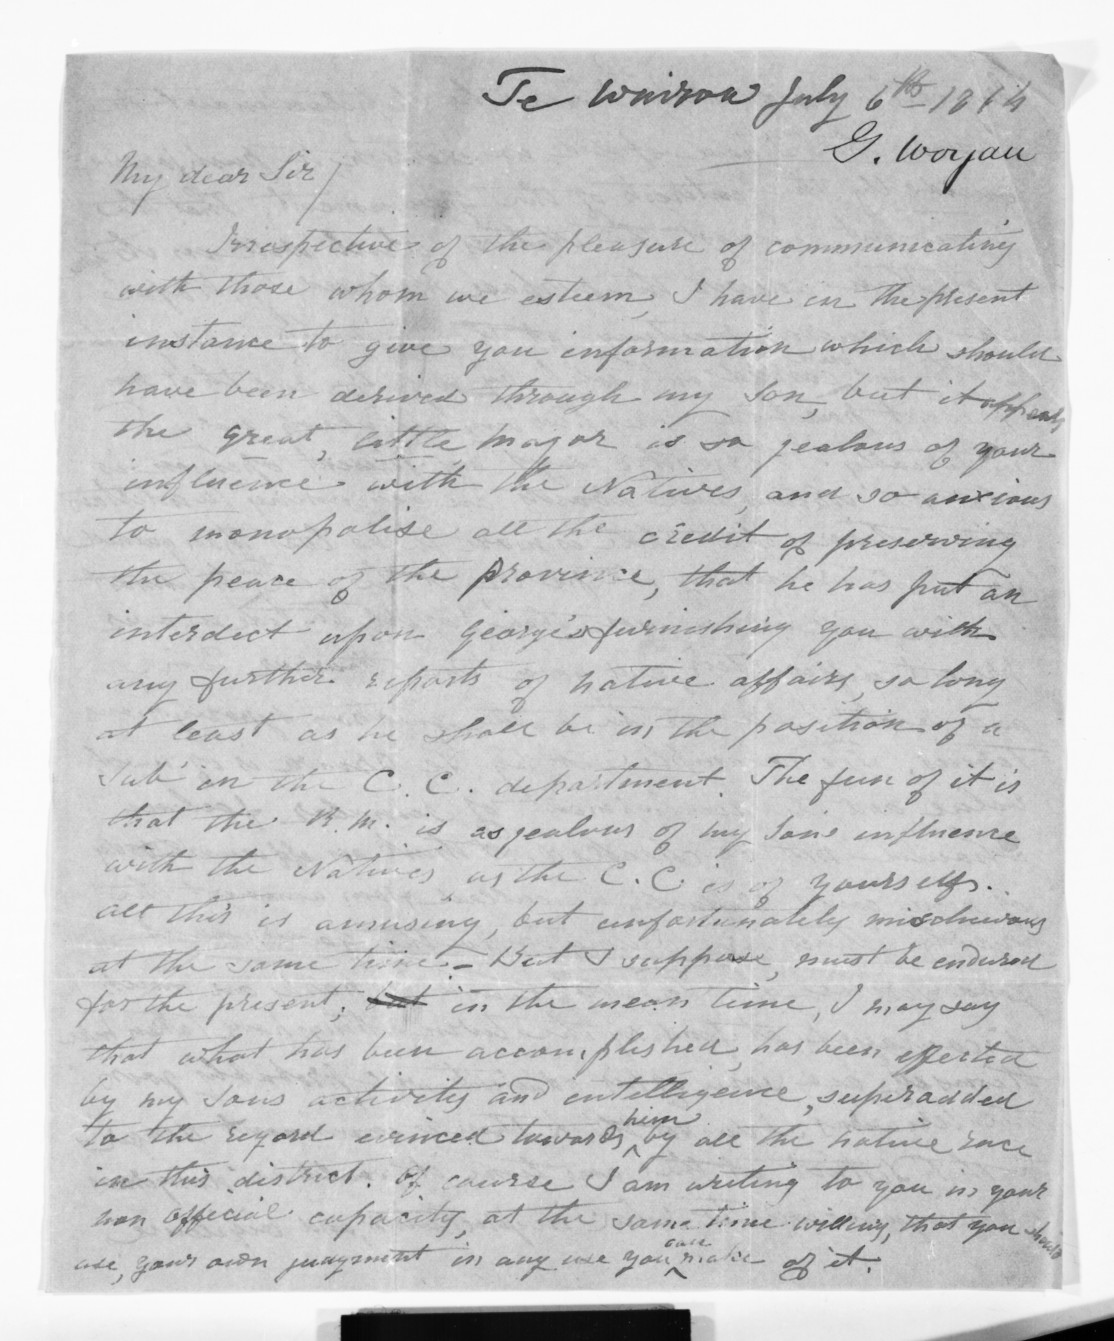 Te Wairoa July 6th 1864
G. Worgan
My dear Sir/
Irrespective of the pleasure of communicating
with those whom we esteem, I have in the present
instance to give you information which should
have been derived through my Son, but it appears
the great, little Major is so jealous of your
influence with the Natives, and so anxious
to monopolise all the credit of preserving
the peace of the Province, that he has put an
interdict upon George's furnishing you with
any further reports of native affairs, so long
at least as he shall be in the position of a
Sub in the C. C. department. The fun of it is
that the R.M. is as jealous of my Sons influence
with the Natives, as the C. C. is of yourself.
all this is amusing, but unfortunately mischievous
at the same time – But I suppose, must be endured
for the present; but in the mean time, I may say
that what has been accomplished, has been effected
by my Sons activity and intelligence, superadded
to the regard evinced towards him by all the native race
in this district. Of course I am writing to you in your
non official capacity, at the same time willing, that you should
use, your own judgment in any use you can make of it.